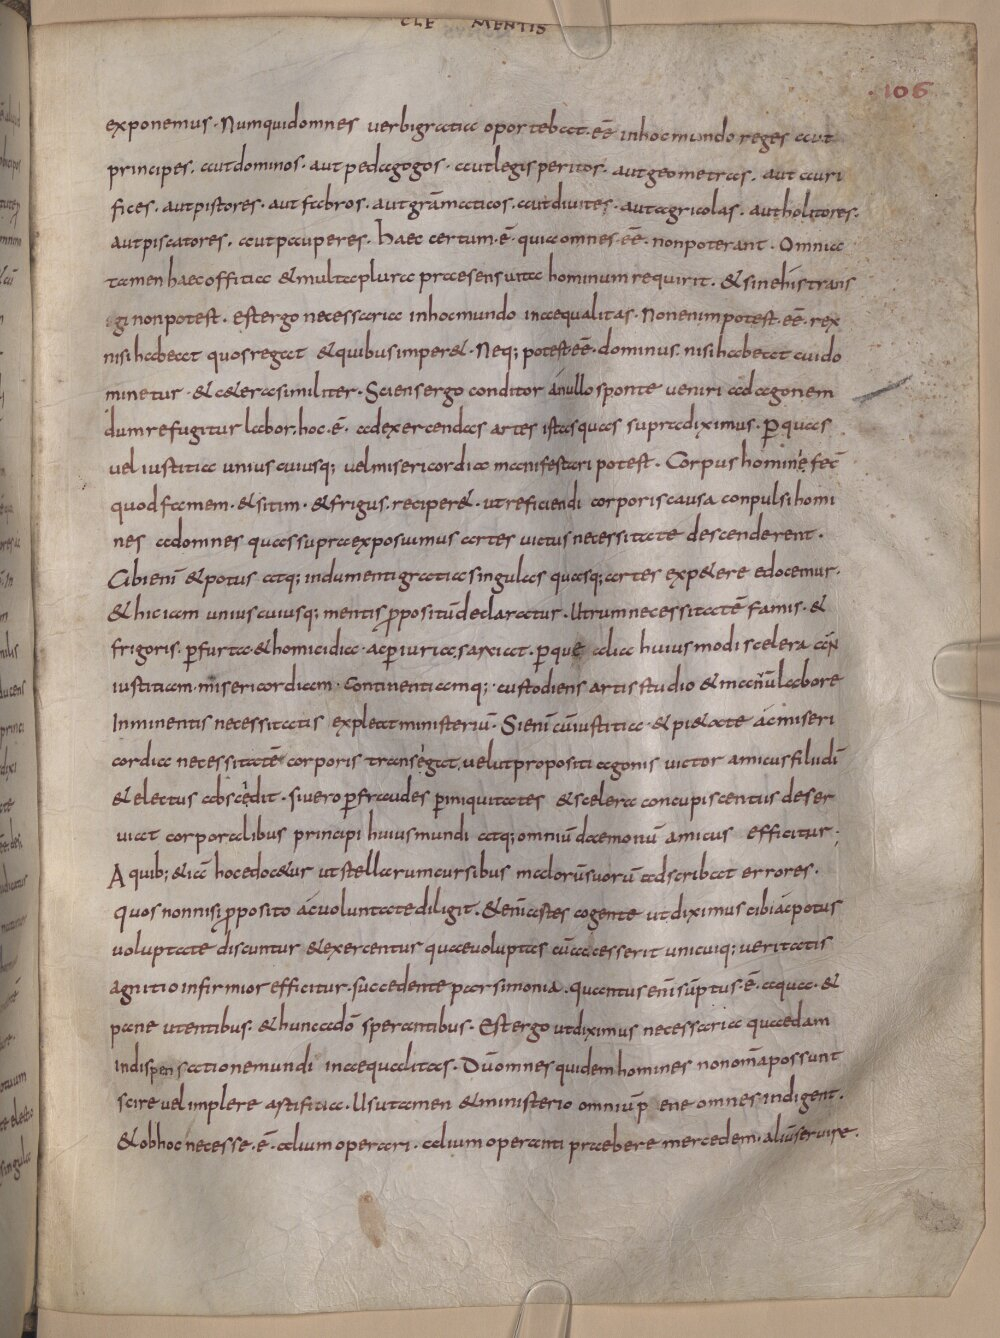 CLE MENTIS
.106
exponemus. Numquid omnes verbi gratia oportebat. eē in hoc mundo reges aut
principes. aut dominos. aut pedagogos. aut legis peritos. aut geometras. aut auri
fices. aut pistores. aut fabros. aut grāmaticos. aut divites. aut agricolas. aut holitores.
aut piscatores. aut pauperes. haec certum. ē. quia omnes. eē. non poterant. Omnia
tamen haec offitia & multa plura praesens vita hominum requirit. & sine his trans
igi non potest. est ergo necessaria in hoc mundo inaequalitas. Non enim potest. eē. rex
nisi habeat quos regat & quibus imper&. Neq; potest. eē. dominus. nisi habeat cui do
minetur. & c&era similiter. Sciens ergo conditor a nullo sponte veniri ad agonem
dum refugitur labor. hoc. ē. ad exercendas artes istas quas supra diximus. p̄ quas
vel iustitia uniuscuiusq; vel misericordia manifestari potest. Corpus hominē fec̄
quod famem. & sitim. & frigus. reciper&. ut reficiendi corporis causa conpulsi homi
nes ad omnes quas supra exposuimus artes victus necessitate descenderent.
Cibi enī & potus atq; indumenti gratia singulas quasq; artes exp&ere edocemur.
& hic iam uniuscuiusq; mentis p̄positū declaratur. Utrum necessitatē famis. &
frigoris. p̄ furta & homicidia. ac p̄iuria, faxiat. p̄ quę alia huiusmodi scelera
iustitiam. misericordiam. continentiamq;. custodiens artis studio & manuū labore
Inminentis necessitatis expleat ministeriū. Si enī cū iustitia. & pi&ate ac miseri
cordia necessitatē corporis transegat, velut propositi agonis victor amicus filii dī
& electus abscedit. si vero p̄ fraudes p̄ iniquitates & scelera concupiscentiis deser
viat corporalibus principi huius mundi atq; omniū daemoniū amicus efficitur.
A quib; &iā hoc edoc&ur ut stellarum cursibus malorū suorū adscribat errores.
quos non nisi p̄posito ac voluntate diligit. & enī artes cogente ut diximus cibi ac potus
voluptate discuntur & exercentur quae voluptas cū accesserit unicuiq; veritatis
agnitio infirmior efficitur. succedente parsimonia. quantus enī sūptus. ē. aqua. &
pane utentibus. & hunc a dō sperantibus. Est ergo ut diximus necessaria quaedam
in dispensatione mundi inaequalitas. Dū omnes quidem homines non omnia possunt
scire vel implere artifitia. Usu tamen & ministerio omniū pene omnes indigent.
& ob hoc necesse. ē. alium operari. alium operanti praebere mercedem. aliū servire.